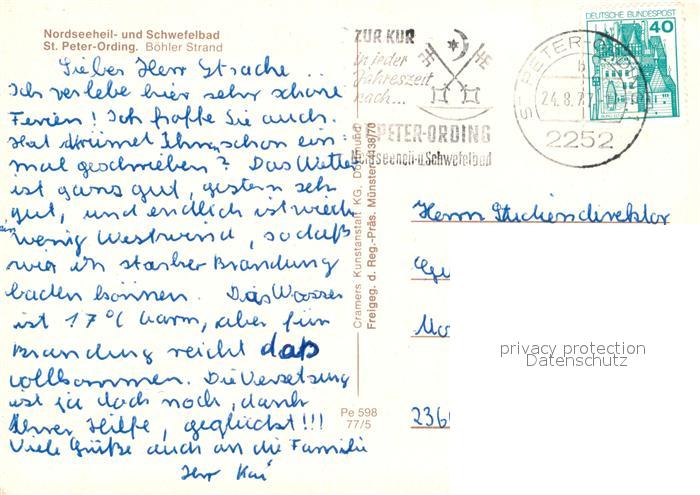 Nordseeheil- und Schwefelbad
St. Peter-Ording. Böhler Strand
Lieber Herr Strache...
Ich verlebe hier sehr schöne
Ferien! Ich hoffe Sie auch.
Hat Ihnen schon ein=
mal geschrieben? Das Wetter
ist ganz gut, gestern sehr
gut, und endlich ist wieder
ein wenig Westwind, sodaß
wir in starker Brandung
baden können. Das Wasser
ist 17°C warm, aber für
Brandung reicht das
vollkommen. Die Versetzung
ist ja doch noch, dank
Ihrer Hilfe, geglückt!!!
Viele Grüße auch an die Familie
Ihr Kai
Cramers Kunstanstalt KG. Dortmund
Freigeg. d. Reg.-Präs. Münster 4138/70
Pe 598
77/5
ZUR KUR
in jeder
Jahreszeit
nach...
ST. PETER-ORDING
Nordseeheil-u. Schwefelbad
ST. PETER-ORDING
b
24.8.77
2252
DEUTSCHE BUNDESPOST
40
Herrn Studiendirektor
Ge
Mo
236
privacy protection
Datenschutz